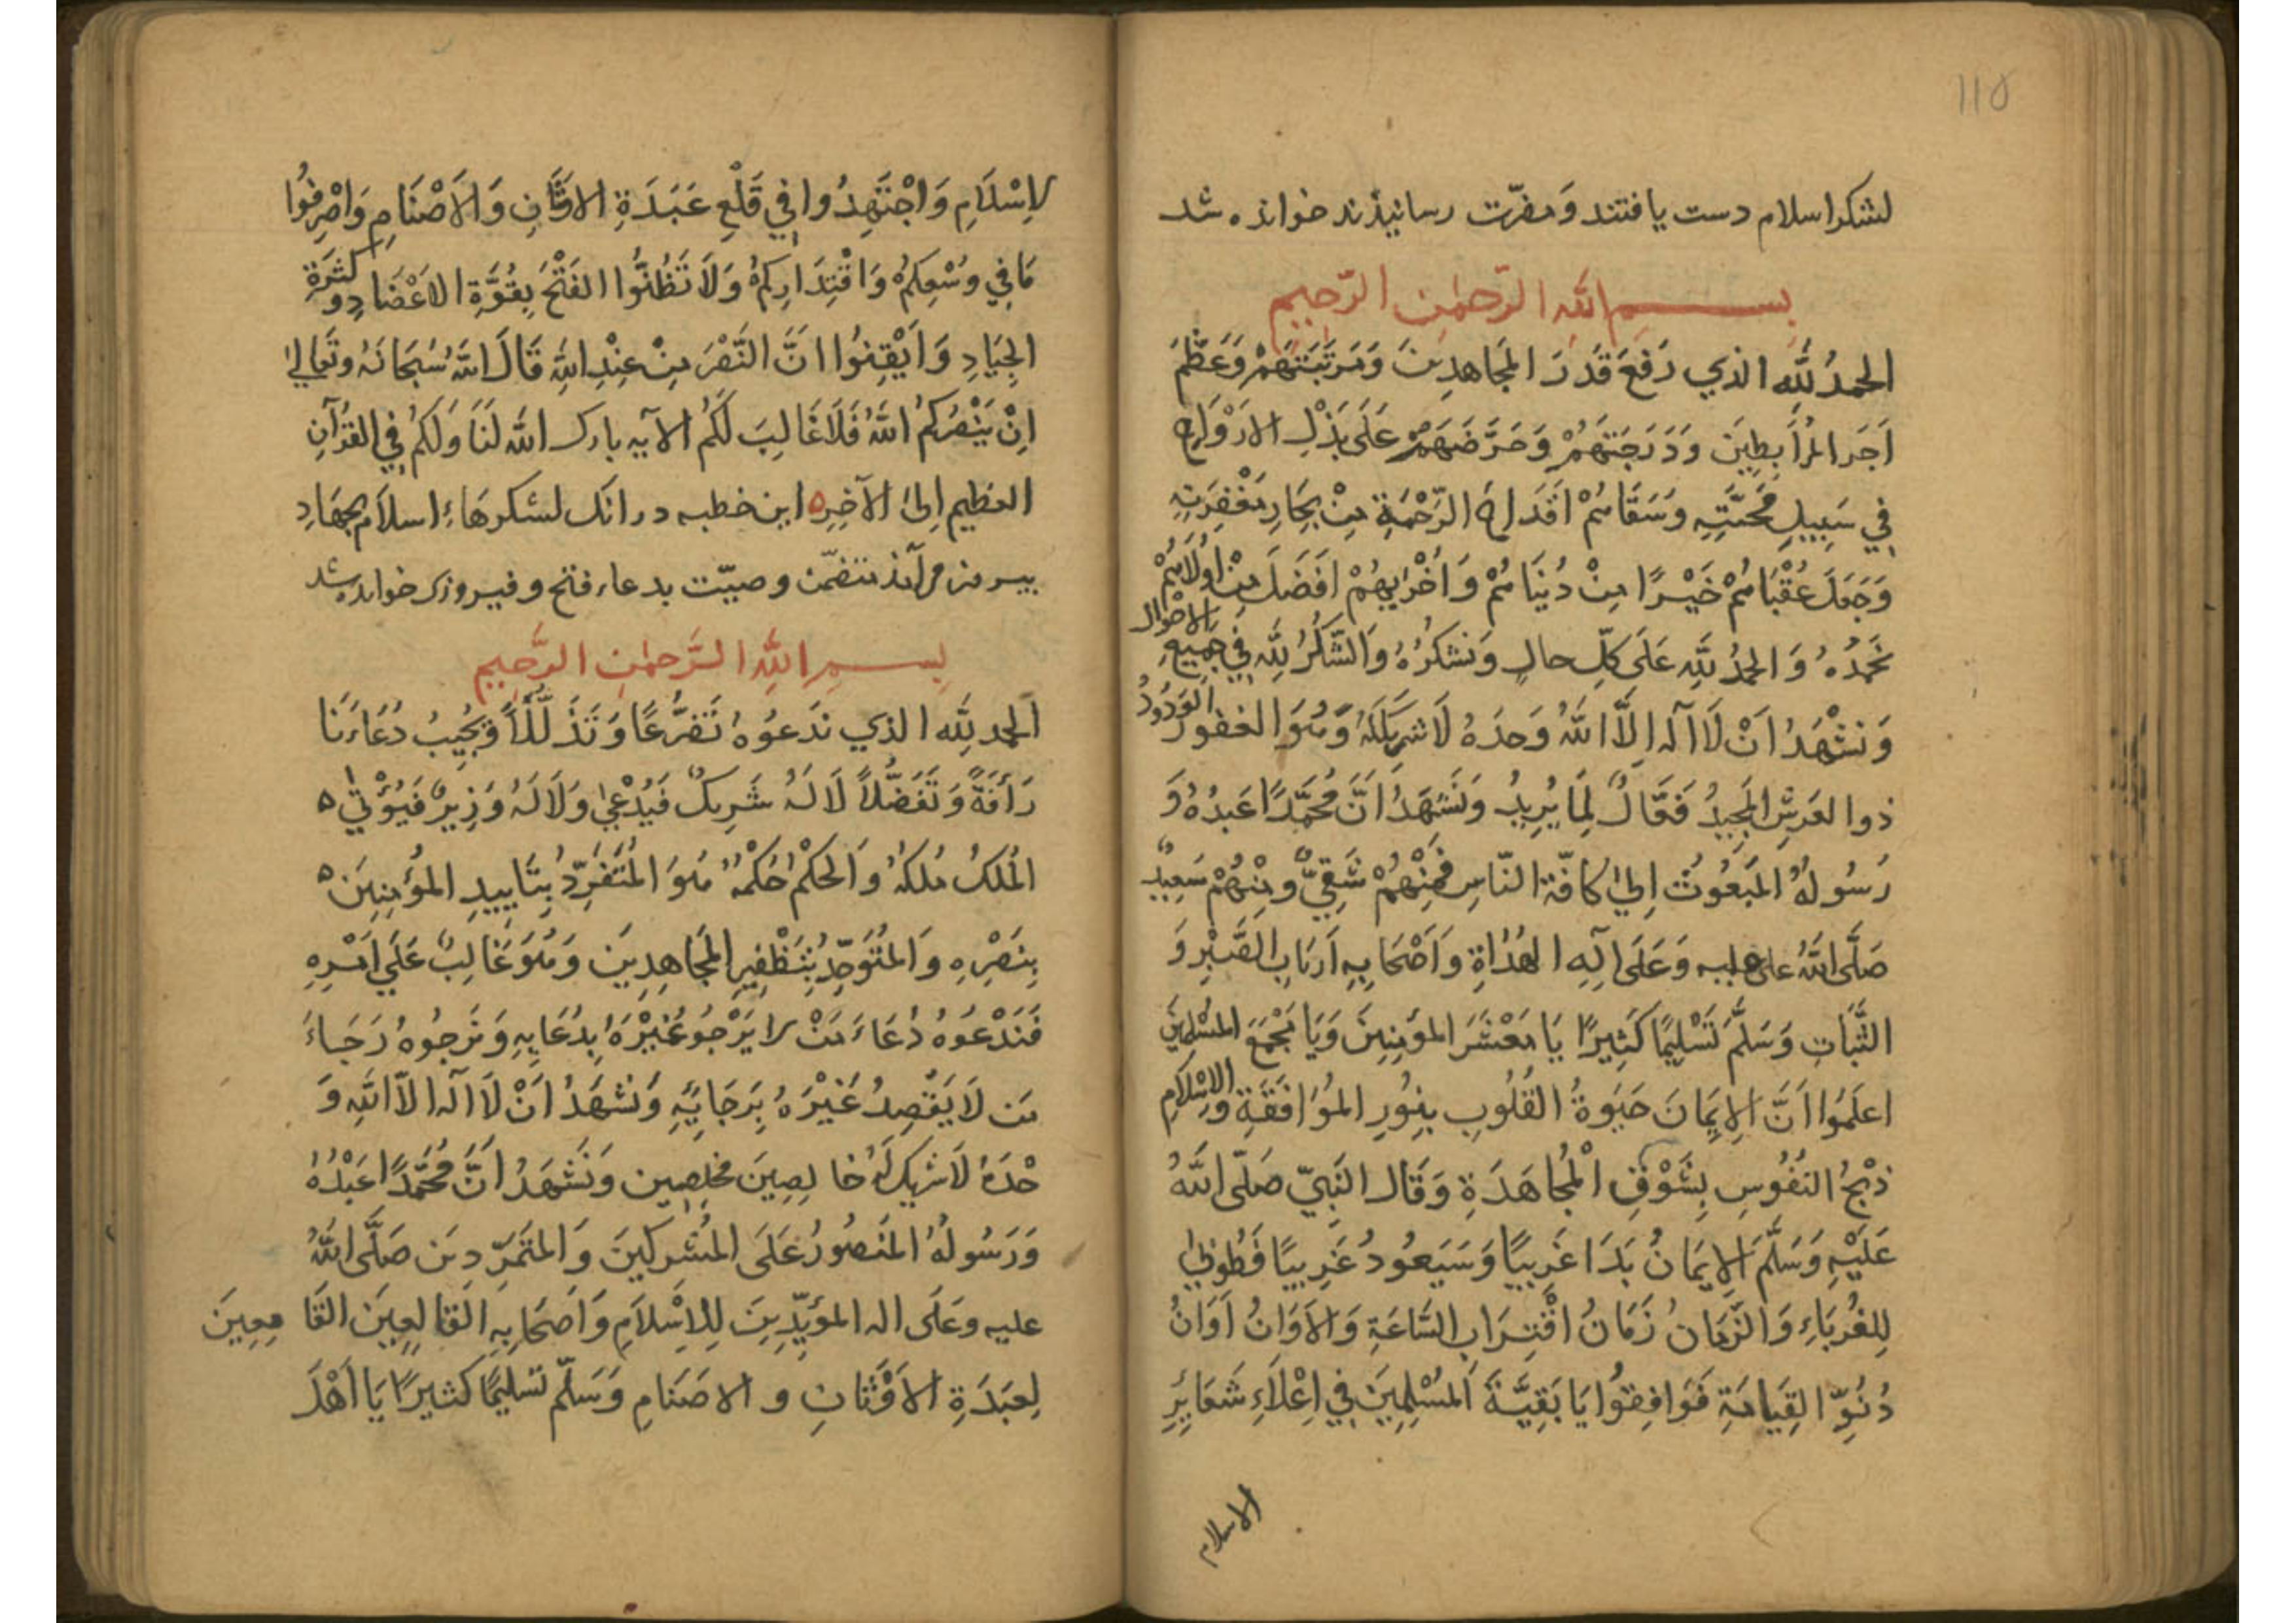 ١١٥
لشکر اسلام دست یافتند وَ مضرّت رسانیذند خوانده شد
بسم اللّٰهِ الرَّحمٰنِ الرَّحیمِ
الحمدُ لِلّٰه الذي رَفَعَ قَدَرَ المجَاهدِينَ وَمَرتَبَتَهَمْ وَعَظَّمَ
اَجَرَ المُرَابِطِينَ وَدَرَجَتَهَمُ وَحَرَّضَهَمْ عَلَى بَذْلِ الارْوَاحِ
فِي سَبِيلِ مَحَبَّتِهِ وَسَقَاهُمْ اَقْدَاحَ الرَّحْمَةِ مِنْ بِحَارِ مَغْفِرَتِهِ
وَجَعَلَ عُقْبَاهُمْ خَيْرًا مِنْ دُنيَاهُمْ وَاُخْرٰيهُمْ اَفضَلَ مِنْ اُولَاهُمْ
نَحْمَدُهُ وَالحمدُ لِلّٰهِ عَلَى كلِّ حالٍ وَنشكُرُهُ وَالشُّكرُ لِلّٰهِ فِي جَمِيعِ الاحْوالِ
وَنشْهَدُ اَنْ لَا اله اِلاَّ اللّٰهُ وَحدَهُ لَا شريكَ لَهُ وَهُوَ الغفورُ الوَدُودُ
ذوا لعَرشِ المجِيدُ فَعَّالٌ لِمَا يُرِيدُ وَنَشهَدُ اَنَّ مُحَمَّدًا عَبدُهُ وَ
رَسُولُهُ المَبعُوثُ اِلىٰ كافّة النّاسِ فمِنْهُمْ شَقِيٌّ ومِنْهُمْ سَعِيدٌ
صَلَّى اللّٰهُ على عليه وَعَلَى آلِهِ الهُدٰاةِ وَاَصْحَابِهِ اَربَابِ الصَّبْرِ وَ
الثَّبَاتِ وَسَلَّمَ تَسْلِيمًا كَثِيرًا يَا مَعْشَرَ المؤمِنِينَ وَيَا مَجْمَعَ المُسْلِمِينَ
اعلَمُوا اَنَّ الاِيمَانَ حَيٰوةُ القُلُوبِ بِنُورِ المُوَافَقَةِ وَالاِسْلَامِ
ذبْحُ النفُوسِ بِشَوْقِ المُجَاهَدَةِ وَقَال النَبِيّ صَلّى اللّٰهُ
عَلَيْهِ وَسَلَّمَ الاِيمَانُ بَدَا غَرِيبًا وَسَيَعُودُ غَرِيبًا فَطُوبىٰ
لِلغُرَبَاءِ وَالزَّمَانُ زَمَانُ اقْتِرَابِ السَّاعَةِ وَالاَوَانُ اَوَانُ
دُنُوِّ القِيَامَةِ فَوَافِقُوا يَا بَقِيَّةَ المُسْلِمِينَ فِي اِعْلَاءِ شَعَايِرِ
الاسلام
لاِسْلَامِ وَاجْتَهِدُوا فِي قَلْعِ عَبَدَةِ الاوْثَانِ وَالاَصْنَامِ وَاصْرِفُوا
مَا فِي وُسْعِكمُ وَاقْتِدَارِكمُ وَلَا تَظُنُّوا الفَتْحَ بِقُوَّةِ الاَعْضَادِ وكَثرَةِ
الجِيَادِ وَاَيْقِنُوا اَنَّ النَّصْرَ مِنْ عِنْدِ اللّٰهِ قَالَ اللّٰه سُبحَانَهُ وتَعَالىٰ
اِنْ يَنْصُرْكمُ اللّٰهُ فَلَا غَالِبَ لَكُم الآيه بارك اللّٰه لَنَا وَلَكُم فِي القُرْآنِ
العَظيم اِلىٰ الآخِرِه اين خطبه درانک لشکرهَاءِ اسلَام بجهَادِ
بیرون مرآمذ متضمّن وصیّت بدعاء فتح و فیروزی خوانده شد
بسم اللّٰهِ الرَّحمٰنِ الرَّحیمِ
الحمد لِلّٰه الذي نَدعُوهُ تَضَرُّعًا وَتَذَلُّلًا وَيُجِيبُ دُعَاءَنَا
رَأفَةً وَتَفَضُّلاً لَا لَهُ شَرِيكٌ فَيُدْعىٰ وَلَا لَهُ وَزِيرٌ فَيُؤْتىٰ ه
المُلكُ مُلكهُ وَالحُكْمُ حُكمُهُ هُوَ المُتَفَرِّدُ بِتَايِيدِ المؤمِنِينَ ه
بِنَصْرِهِ وَالمتُوَحِّدُ بِتَظْفِيرِ المجَاهِدِينَ وَهُوَ غَالِبٌ عَلَى اَمْرِهِ
فَنَدْعُوهُ دُعَاءَ مَنْ لا يَرْجُو غَيْرَهُ بِدُعَايِهِ وَنَرجُوهُ رَجَاءَ
مَن لَا يَقْصِدُ غَيْرَهُ بِرَجَايِهِ وَنشهَدُ اَنْ لَا اله الاّ اللّٰهِ وَ
حْدَهُ لَا شريكَ لَهُ خالِصِينَ مخلِصِين وَنَشْهَدُ اَنَّ مُحَمَّدًا عَبْدُهُ
وَرَسُولُهُ المَنصُورُ عَلَى المُشرِكينَ وَالمتمَرِّدِينَ صَلَّى اللّٰهُ
عليه وعَلَى اله المؤيّدِينَ لِلاِسْلَامِ وَاَصحَابِهِ القَالِعِينَ القَامِعِينَ
لِعَبَدَةِ الاَوْثَانِ و الاصَنَامِ وَسَلّم تسليمًا كثيرًا يَا اَهْلَ